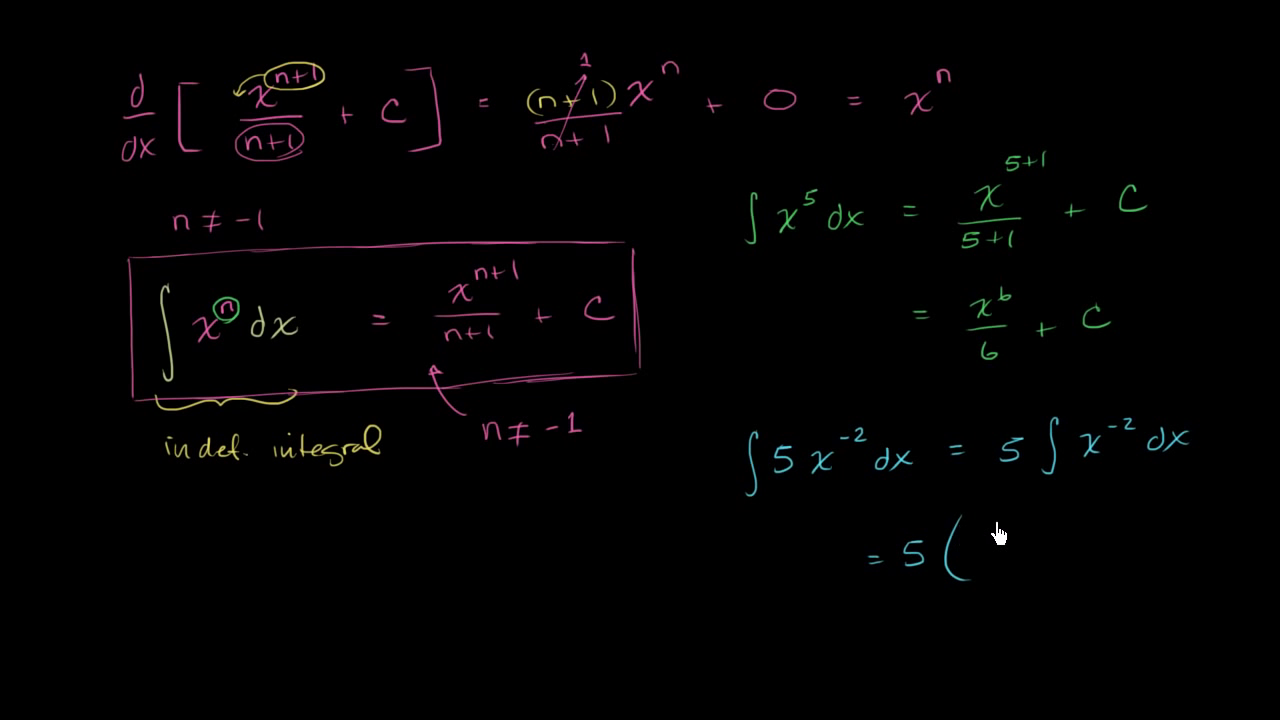 d/dx [ x^(n+1)/(n+1) + C ] = (n+1)x^n/(n+1) + 0 = x^n
1
n ≠ -1
∫ x^n dx = x^(n+1)/(n+1) + C
n ≠ -1
indef. integral
∫ x^5 dx = x^(5+1)/(5+1) + C
= x^6/6 + C
∫ 5 x^-2 dx = 5 ∫ x^-2 dx
= 5 (